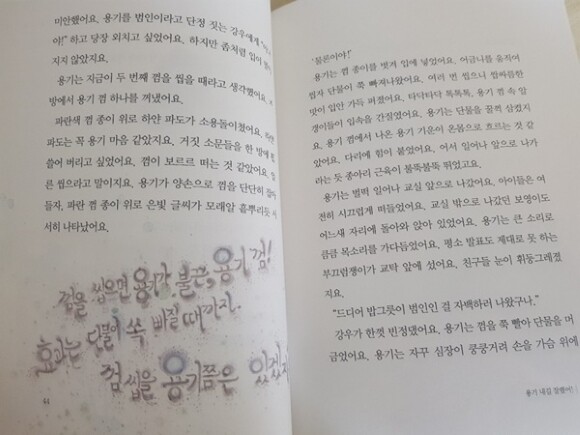 미안했어요. 용기를 범인이라고 단정 짓는 강우에게
야!" 하고 당장 외치고 싶었어요. 하지만 좀처럼 입이
지지 않았지요.
용기는 지금이 두 번째 껌을 씹을 때라고 생각했어요.
방에서 용기 껌 하나를 꺼냈어요.
파란색 껌 종이 위로 하얀 파도가 소용돌이쳤어요.
파도는 꼭 용기 마음 같았지요. 거짓 소문들을 한 방에
쓸어 버리고 싶었어요. 껌이 보르르 떠는 것 같았어요.
른 씹으라고 말이지요. 용기가 양손으로 껌을 단단히
들자, 파란 껌 종이 위로 은빛 글씨가 모래알 흩뿌리듯
서히 나타났어요.
껌을 씹으면 용기가 불끈, 용기 껌!
효과는 단물이 쏙 빠질 때까지.
껌 씹을 용기쯤은 있겠지
44
'물론이야!'
용기는 껌 종이를 벗겨 입에 넣었어요. 어금니를 움직여
씹자 단물이 쭉 빠져나왔어요. 여러 번 씹으니 짭짜름한
맛이 입안 가득 퍼졌어요. 타닥타닥 톡톡톡, 용기 껌 속 알
갱이들이 입속을 간질였어요. 용기는 단물을 꿀꺽 삼켰지
요. 용기 껌에서 나온 용기 기운이 온몸으로 흐르는 것 같
았어요. 다리에 힘이 붙었어요. 어서 일어나 앞으로 나가
라는 듯 종아리 근육이 불뚝불뚝 뛰었고요.
용기는 벌떡 일어나 교실 앞으로 나갔어요. 아이들은 여
전히 시끄럽게 떠들었어요. 교실 밖으로 나갔던 보영이도
어느새 자리에 돌아와 앉아 있었어요. 용기는 큰 소리로
큼큼 목소리를 가다듬었어요. 평소 발표도 제대로 못 하는
부끄럼쟁이가 교탁 앞에 섰어요. 친구들 눈이 휘둥그레졌
지요.
"드디어 밥그릇이 범인인 걸 자백하러 나왔구나."
강우가 한껏 빈정댔어요. 용기는 껌을 쭉 빨아 단물을 머
금었어요. 용기는 자꾸 심장이 쿵쿵거려 손을 가슴 위에
용기 내길 잘했어!